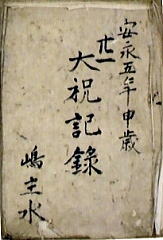 安永五年申歳
廿一
大祝記録
嶋主水